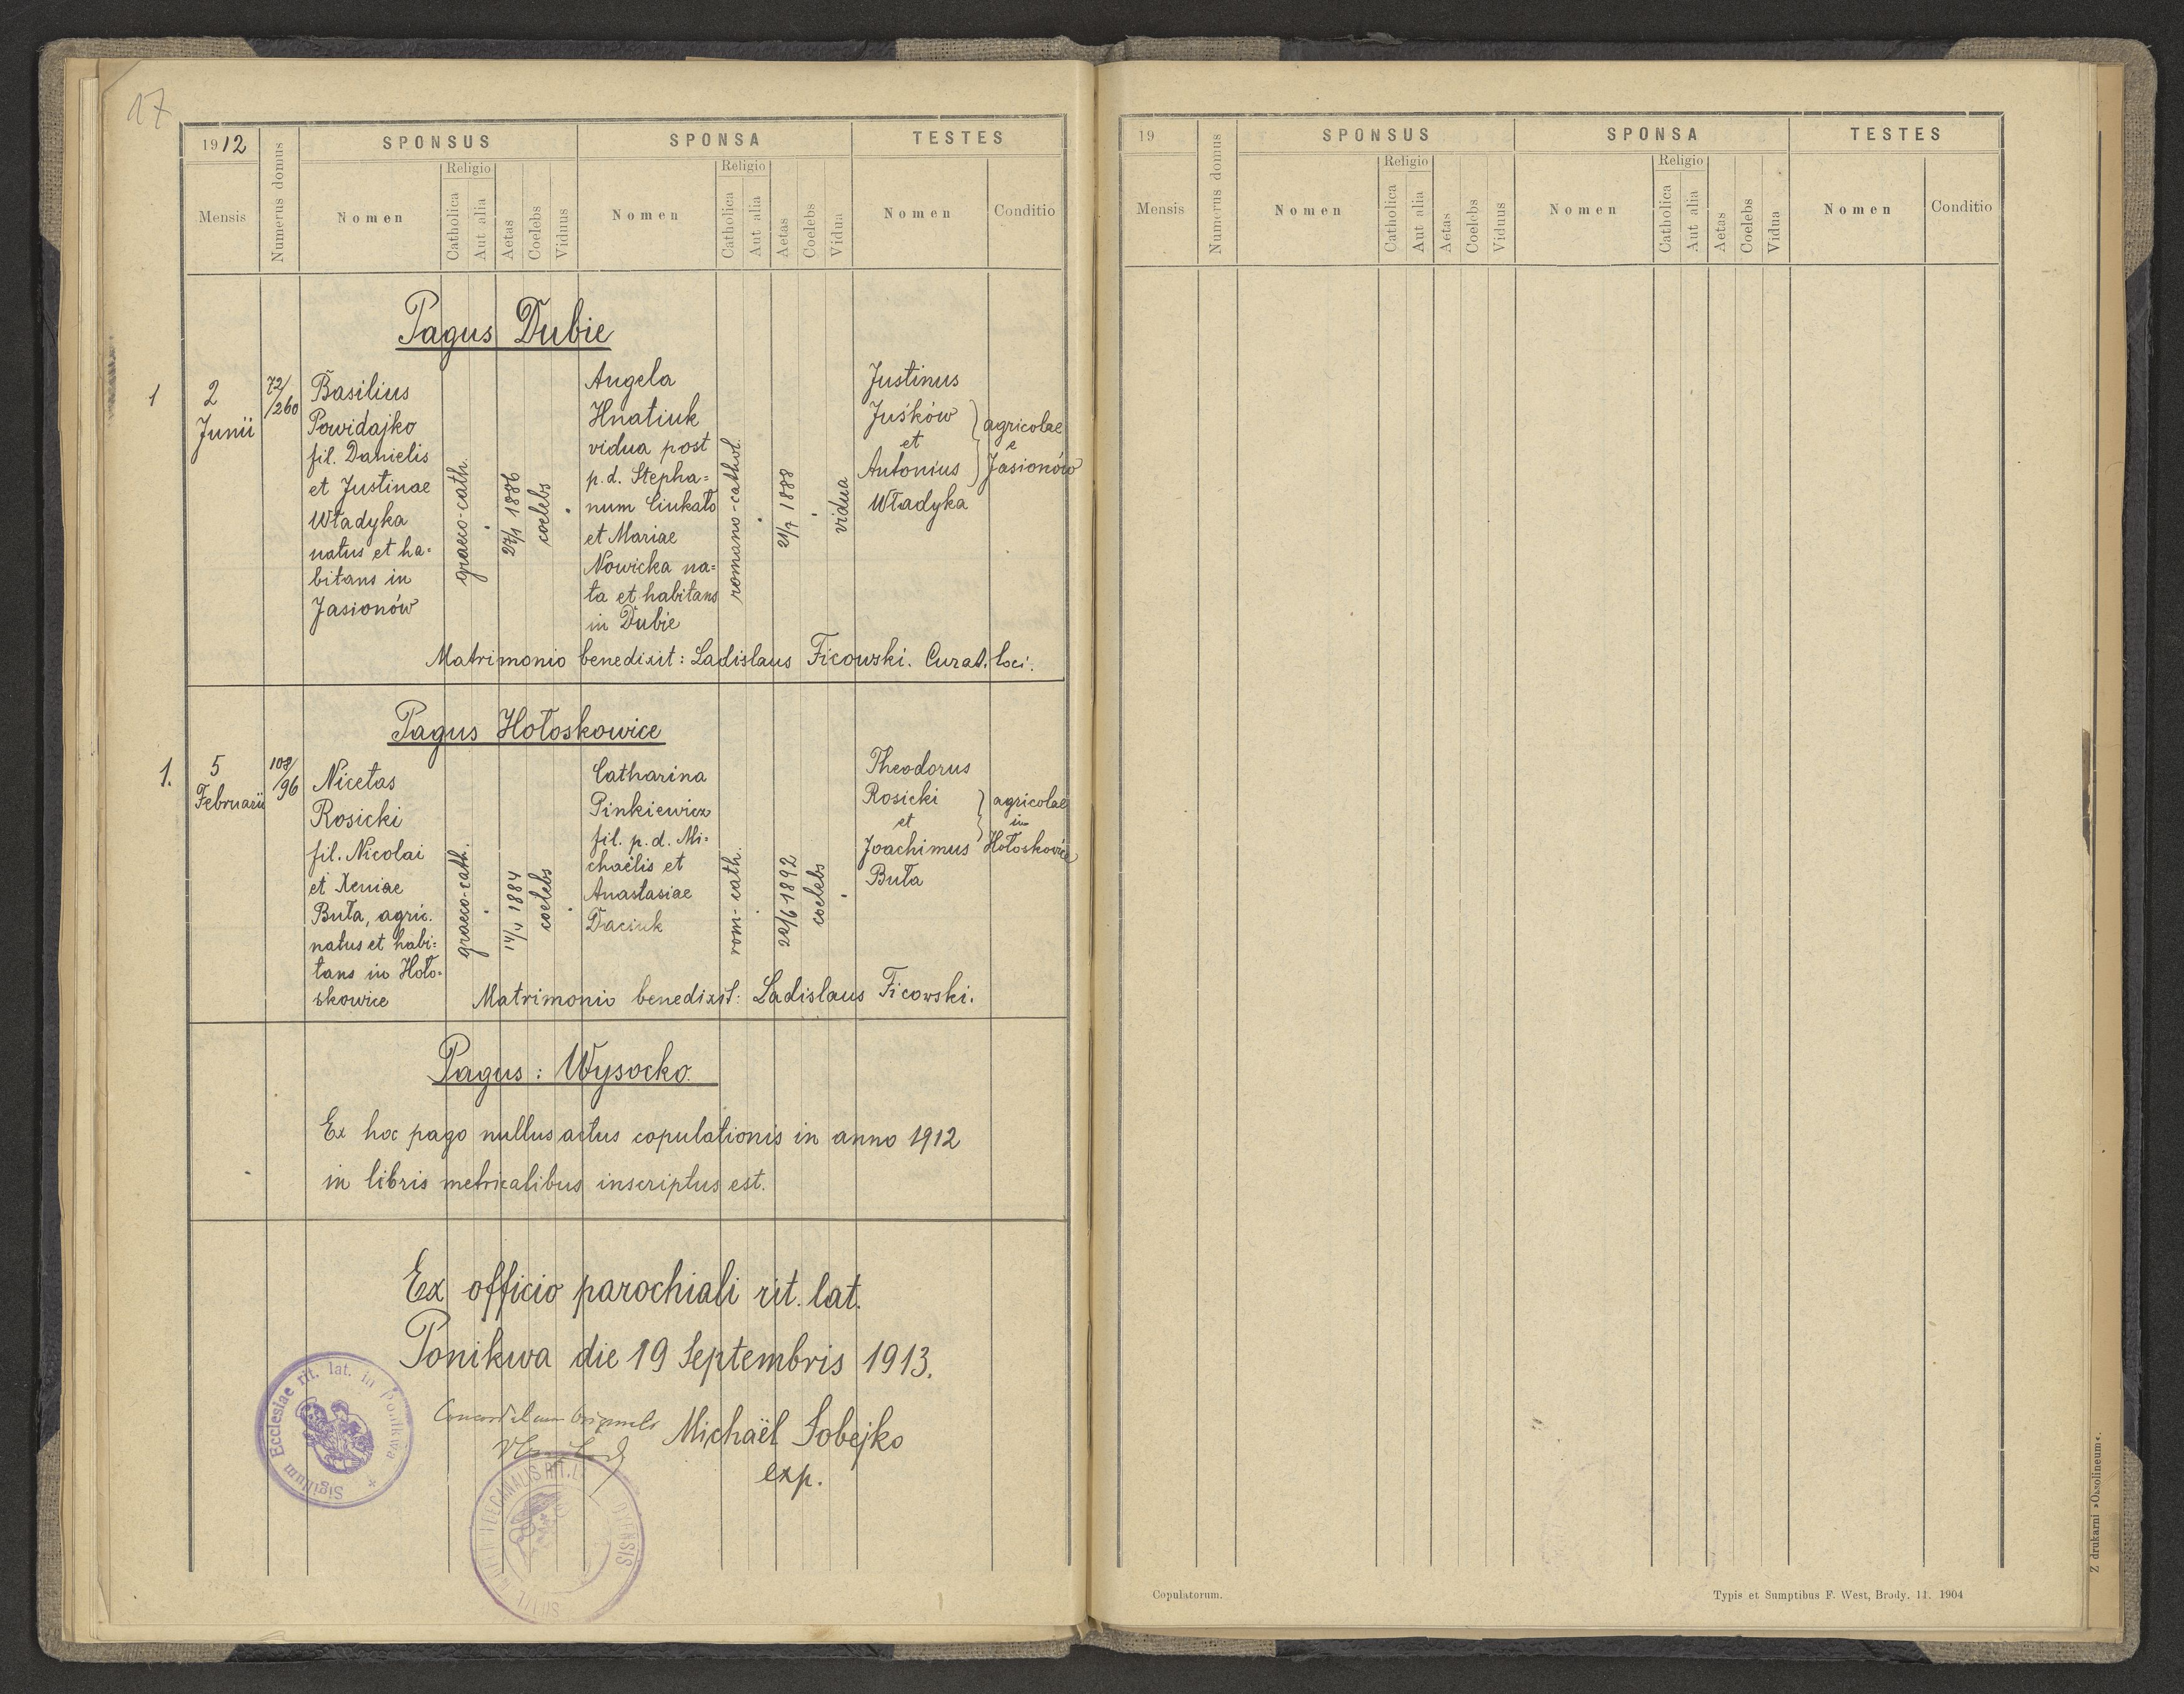 17
1912
Mensis
Numerus domus
SPONSUS
Nomen
Religio
Catholica
Aut alia
Aetas
Coelebs
Viduus
SPONSA
Nomen
Religio
Catholica
Aut alia
Aetas
Coelebs
Vidua
TESTES
Nomen
Conditio
Pagus Dubie
1
2
Junii
72/
/260
Basilius
Powidajko
fil. Danielis
et Justinae
Władyka
natus et ha-
bitans in
Jasionów
graeco-cath.
27/1 1886
coelebs
Angela
Hnatiuk
vidua post
p. d. Stepha-
num Ciukało
et Mariae
Nowicka na-
ta et habitans
in Dubie
romano-cathol.
21/7 1888
vidua
Justinus
Juśków
et
Antonius
Władyka
agricolae
e
Jasionów
Matrimonio benedixit: Ladislaus Ficowski. Curat. loci.
Pagus Hołoskowice
1.
5
Februarii
108/
/96
Nicetas
Rosicki
fil. Nicolai
et Xeniae
Buła, agric.
natus et habi-
tans in Hoło-
skowice
graeco-cath.
14/4 1884
coelebs
Catharina
Pinkiewicz
fil. p. d. Mi-
chaëlis et
Anastasiae
Daciuk
rom-cath.
20/6 1892
coelebs
Theodorus
Rosicki
et
Joachimus
Buła
agricolae
in
Hołoskowice
Matrimonio benedixit: Ladislaus Ficowski.
Pagus: Wysocko.
Ex hoc pago nullus actus copulationis in anno 1912
in libris metricalibus inscriptus est.
Ex officio parochiali rit. lat.
Ponikwa die 19 Septembris 1913.
Concordat cum originali
Michaël Sobejko
exp.
Sigillum Ecclesiae rit. lat. in Ponikwa
19
Mensis
Numerus domus
SPONSUS
Nomen
Religio
Catholica
Aut alia
Aetas
Coelebs
Viduus
SPONSA
Nomen
Religio
Catholica
Aut alia
Aetas
Coelebs
Vidua
TESTES
Nomen
Conditio
Copulatorum.
Typis et Sumptibus F. West, Brody. 11. 1904
Z drukarni »Ossolineum«.